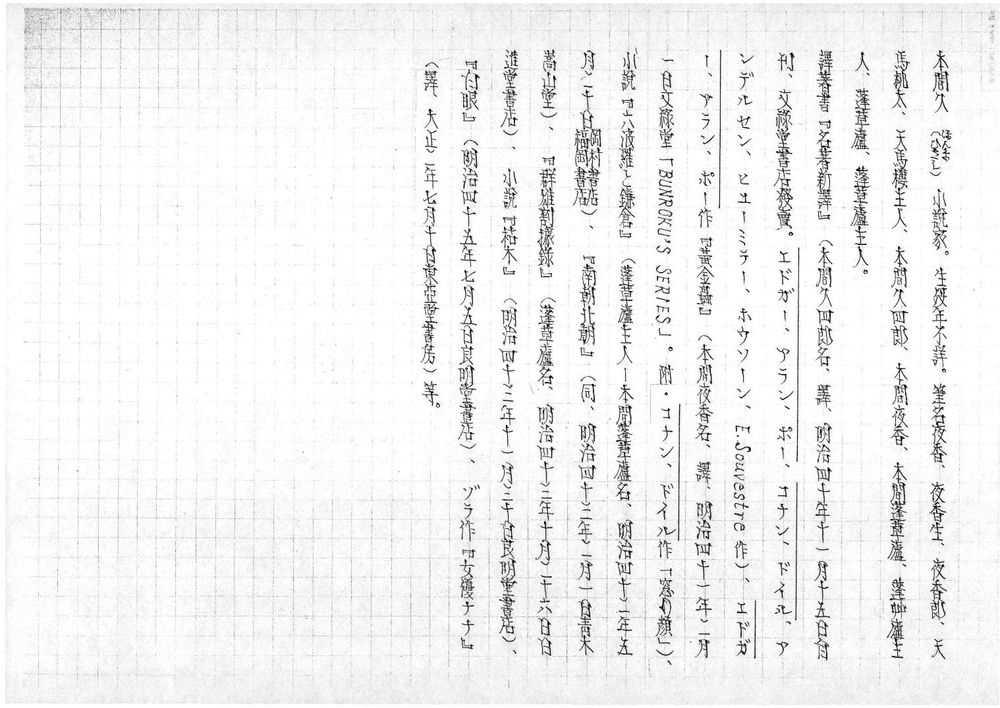 本間久(ほんまひさし)小説家。生歿年不詳。筆名夜香、夜香生、夜香郎、天
馬桃太、天馬樓主人、本間久四郎、本間夜香、本間蓬草廬、蓬艸廬主
人、蓬草廬、蓬草廬主人。
譯著書『名著新譯』(本間久四郎名、譯、明治四十年十一月十五日付
刊、文祿堂書店發賣。エドガー、アラン、ポー、コナン、ドイル、ア
ンデルセン、ヒユーミラー、ホウソーン、E.Souvestre作)、エドガ
ー、アラン、ポー作『黄金蟲』(本間夜香名、譯、明治四十一年二月
一日文祿堂「BUNROKU'S SERIES」。附・コナン、ドイル作「窓の顔」)、
小説『六波羅と鎌倉』(蓬草廬主人—本間蓬草廬名、明治四十二年五
月二十日岡村書店 福岡書店)、『南朝北朝』(同、明治四十二年二月一日青木
嵩山堂)、『群雄割據録』(蓬草廬名、明治四十三年十月二十六日日
進堂書店)、小説『枯木』(明治四十三年十一月三十日良明堂書店)、
『白眼』(明治四十五年七月五日良明堂書店)、ゾラ作『女優ナナ』
(譯、大正二年七月十日東亞堂書房)等。